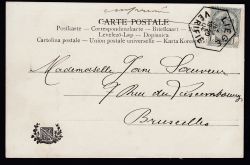 imprimé
CARTE POSTALE
Postkarte — Correspondenzkarte — Briefkaart
Levelező-Lap — Dopisnica
Cartolina postale — Union postale universelle — Karta Korespon
LIÈGE
Mademoiselle Jane
7 Rue du Luxembourg
Bruxelles